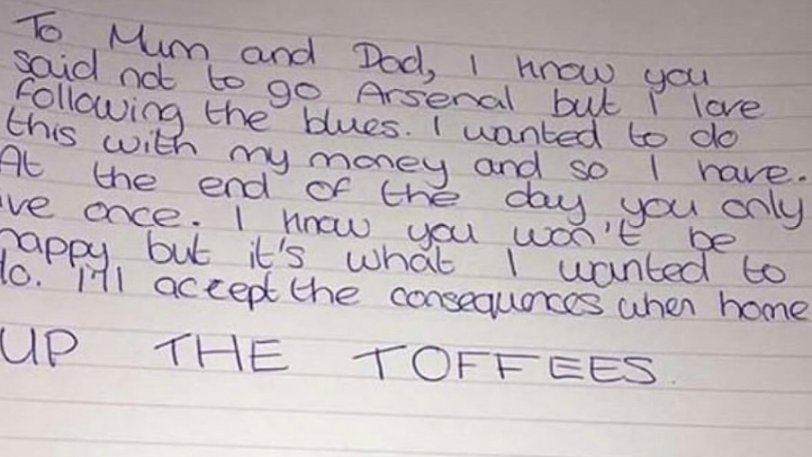 To Mum and Dad, I know you
said not to go Arsenal but I love
following the blues. I wanted to do
this with my money and so I have.
At the end of the day you only
ive once. I know you won't be
happy but it's what I wanted to
do. I'll accept the consequences when home
UP THE TOFFEES.